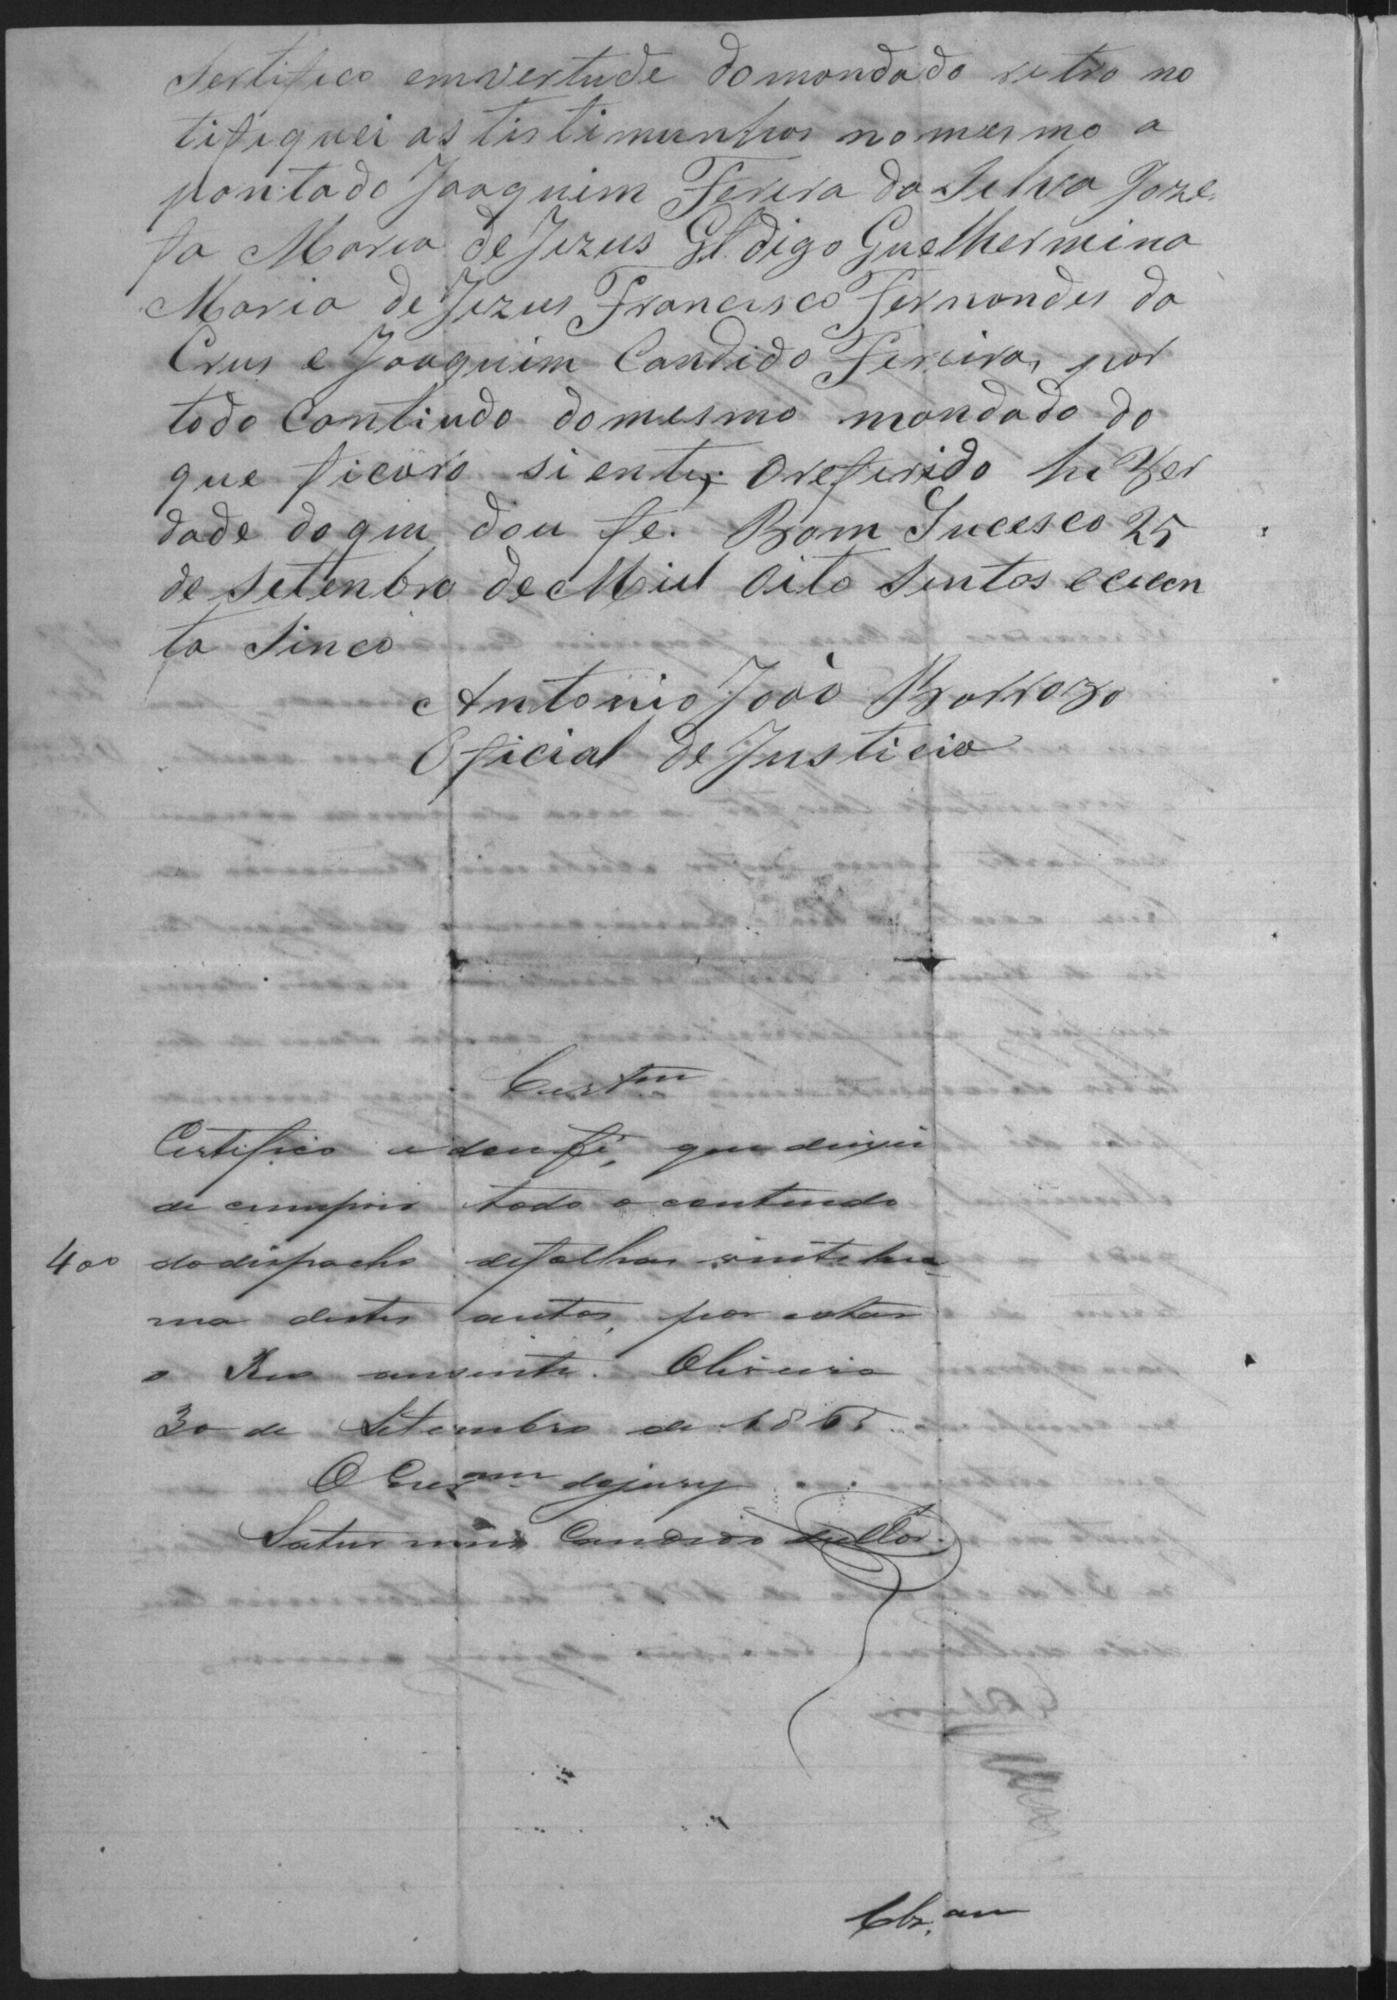 Sertifico emvertude domondado retro no
tifiquei as tistimunhas nomesmo a
pontado Joaquim Fereira da Selva Joze
fa Maria de Jezus Gl. digo Guelhermina
Maria de Jezus Francisco Fernondes da
Crus e Joaquim Candido Fereira, por
todo Contiudo domesmo mondado do
que ficaro sientes. Oreferido he Ver
dade doque dou fe. Bom Sucesco 25
de Setenbro de Mil Oito Sentos e
ta Sinco
Antonio João Barrozo
Oficial de Justicia
Certam
Certifico e dou fé, que deixei
de cumprir todo o contiudo
400 dodispacho defolhas vinte hu
ma destes autos, por estar
o Reo auzente. Oliveira
30 de Setembro de 1865
O Escram dejury
Saturnino Candido
Clzam